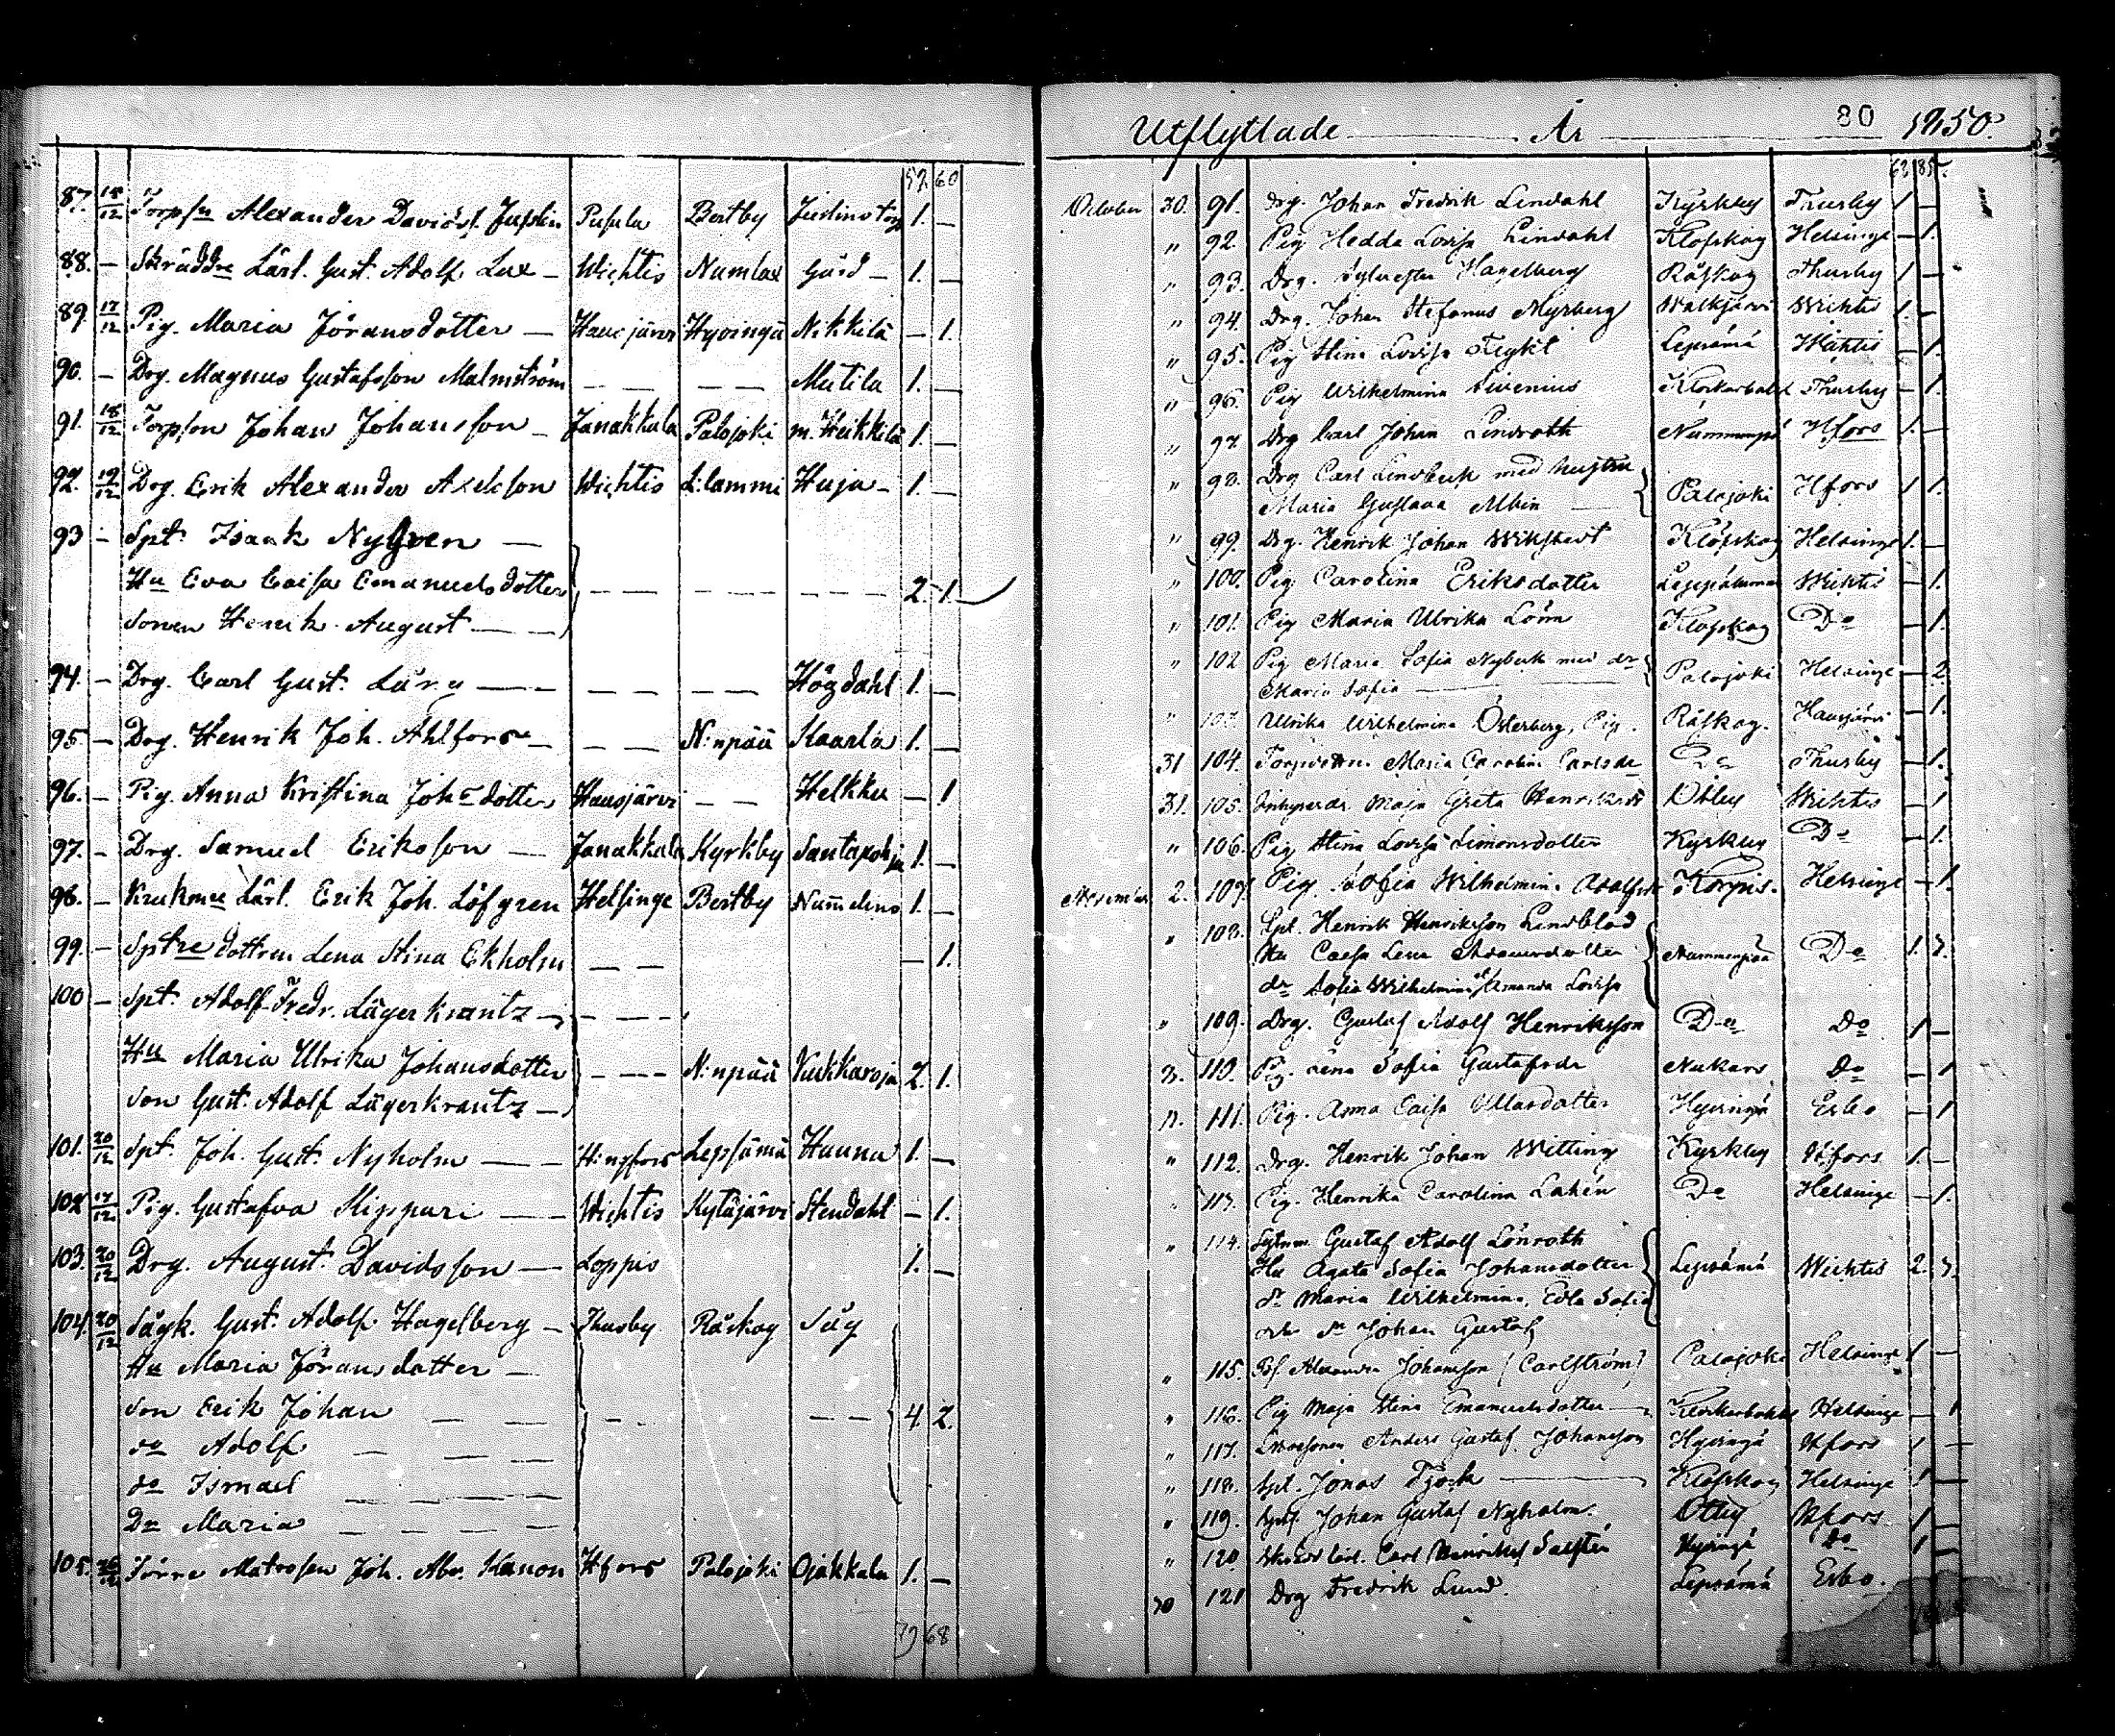 59. 60
87. 15/12 Torpsn Alexander Davidss. Justin Pusula Bertby Justins torp 1. —
88. — Skräddre Lärl. Gust. Adolf Lax — Wichtis Numlax Gård — 1. —
89. 17/12 Pig. Maria Jöransdotter — Hausjärvi Hyvingä Nikkilä — 1.
90. — Drg. Magnus Gustafsson Malmström — — — — Mutila 1. —
91. 18/12 Torpson Johan Johansson — Janakkala Palojoki m. Heikkilä 1. —
92. 19/12 Drg. Erik Alexander Axelsson Wichtis L:lammi Huja — 1. —
93 — Spt. Isaak Nygren —
Hu Eva Caisa Emanuelsdotter — — — — — — — — 2. 1.
Sonen Henrik August — —
94. — Drg. Carl Gust. Lång — — — — — — Högdahl 1. —
95 — Drg. Henrik Joh. Ahlfors — — — N:npää Kaarla 1. —
96. — Pig. Anna Kristina Johsdotter Hausjärvi — — Helkku — 1
97. — Drg. Samuel Eriksson — Janakkala Kyrkby Santapohja 1. —
98. — Krukme Lärl. Erik Joh. Löfgren Helsinge Bertby Num̄elins 1. —
99. — Sptre dottren Lena Stina Ekholm — — — 1.
100 — Spt. Adolf Fredr. Lägerkrantz — — —
Hu Maria Ulrika Johansdotter — — — N:npää Kukkaroja 2. 1.
Son Gust. Adolf Lägerkrantz —
101. 20/12 Spt. Joh. Gust. Nyholm — — H:ngfors Lepsämä Hannu 1. —
102 17/12 Pig. Gustafva Skippari — — Wichtis Kytäjärvi Stendahl — 1.
103. 20/12 Drg. August Davidsson — Loppis 1. —
104. 20/12 Sågk. Gust. Adolf Hagelberg — Thusby Råskog Såg
Hu Maria Jöransdotter —
Son Erik Johan — — — — — — 4 2.
do Adolf — — —
do Ismael — — — —
Dr Maria — — — —
105. 20/12 Matrosen Joh. Abr. Kanon Hfors Palojoki Ojakkala 1. —
79 68
Utflyttade År 80 1850.
63 85
October 30. 91. Drg. Johan Fredrik Lindahl Kyrkby Thusby 1 —
" 92. Pig Hedda Lovisa Lindahl Klöfskog Helsinge — 1.
" 93. Drg. Sylvester Hagelberg Råskog Thusby 1 —
" 94. Drg. Johan Stefanus Myrberg Walkjärvi Wichtis 1. —
" 95. Pig Stina Lovisa Lepsämä Wichtis — 1.
" 96. Pig Wilhelmina Sirenius Klockarbohl Thusby — 1.
" 97 Drg Carl Johan Lindroth Nummenpä Hfors 1. —
" 98. Drg Carl Lindbeck med hustru
Maria Gustava Albin — Palojoki Hfors 1 1.
" 99. Drg. Henrik Johan Wikstedt Klöfskog Helsinge 1. —
" 100. Pig. Carolina Eriksdotter Wichtis — 1.
" 101. Pig Maria Ulrika Löön Klöfskog Do — 1.
" 102 Pig Maria Sofia Nyberk med dr
Maria Sofia — Palojoki Helsinge — 2.
" 103. Ulrika Wilhelmina Österberg, Pig. Råskog. Hausjärvi — 1.
31 104. Maria Carolina Carlsdr Do Thusby — 1.
31. 105. Maja Greta Henriksdr Otby Wichtis — 1
" 106. Pig Stina Lovisa Simonsdotter Kyrkby Do — 1.
November 2. 107. Pig. Sofia Wilhelmina Adolfsdr Korpis. Helsinge — 1.
" 108. Spt. Henrik Henriksson Lindblad
Hu Caisa Lena Nummenpää Do 1. 3.
dr Sofia Wilhelmina o Amanda Lovisa
" 109. Drg. Gustaf Adolf Henriksson Do Do 1 —
3. 110. Pig. Lena Sofia Gustafsdr Nukars Do — 1
" 111. Pig. Anna Caisa Hyvingä Esbo — 1
" 112. Drg. Henrik Johan Witting Kyrkby Hfors 1. —
" 113. Pig. Henrika Carolina Lahén Do Helsinge — 1.
" 114. Gustaf Adolf Lönroth
Hu Agata Sofia Johansdotter Lepsämä Wichtis 2. 3.
dr Maria Wilhelmina, Edla Sofia
och sn Johan Gustaf
" 115. Alexander Johansson (Carlström) Palojoki Helsinge 1 —
" 116. Pig Maja Stina Emanuelsdotter — Klockarbohl Helsinge — 1
" 117. Anders Gustaf Johansson Hyvingä Hfors 1 —
" 118. Spt. Jonas Tjock — Klöfskog Helsinge 1 —
" 119. Johan Gustaf Nyholm. Otby Hfors 1 —
" 120 Carl Hyvingä Do 1 —
30 121 Drg Fredrik Lund. Lepsämä Esbo.